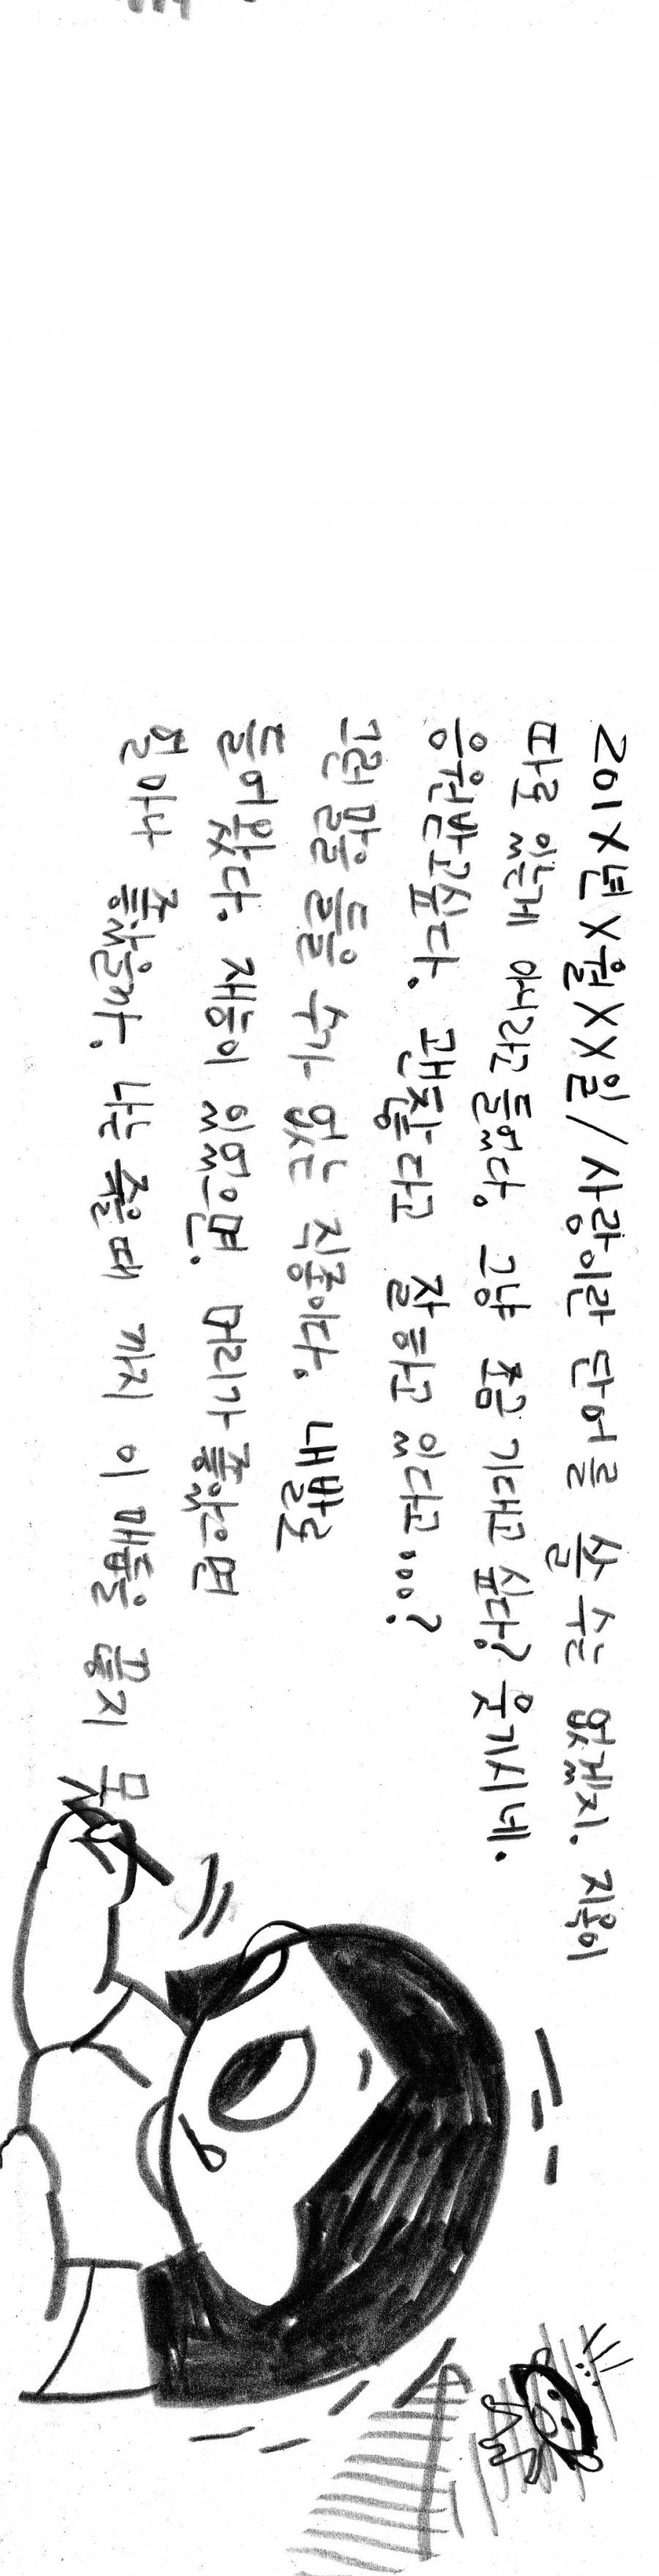 201X년 X월 XX일 / 사랑이란 단어를 쓸 수는 없겠지. 지옥이
따로 있는게 아니라고 들었다. 그냥 조금 기대고 싶다? 웃기시네.
응원받고싶다. 괜찮다고 잘 하고 있다고...?
그런 말을 들을 수가 없는 직종이다. 내발로
들어왔다. 재능이 있었으면. 머리가 좋았으면
얼마나 좋았을까. 나는 죽을때 까지 이 매듭을 끊지 못